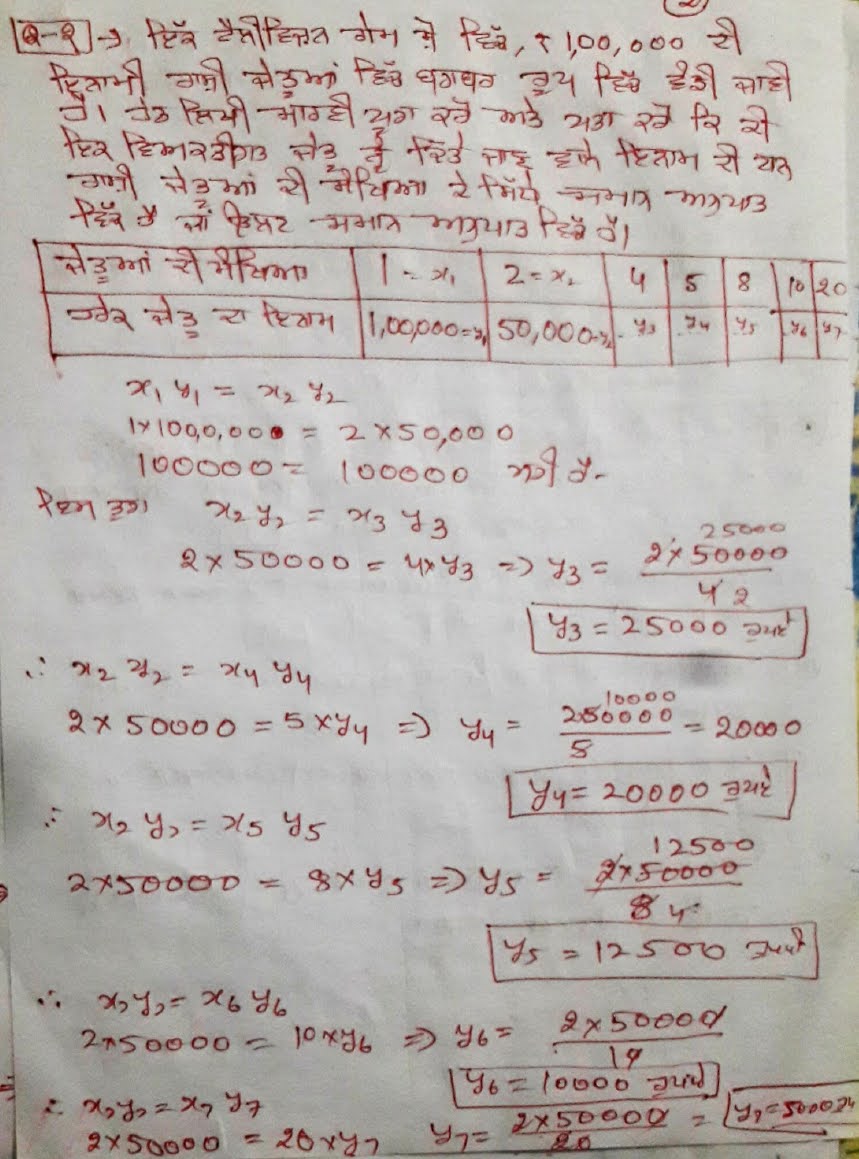 (2)
Q-2 → ਇੱਕ ਟੈਲੀਵਿਜ਼ਨ ਗੇਮ ਸ਼ੋ ਵਿੱਚ, ₹ 1,00,000 ਦੀ
ਇਨਾਮੀ ਰਾਸ਼ੀ ਜੇਤੂਆਂ ਵਿੱਚ ਬਰਾਬਰ ਰੂਪ ਵਿੱਚ ਵੰਡੀ ਜਾਣੀ
ਹੈ। ਹੇਠ ਲਿਖੀ ਸਾਰਣੀ ਪੂਰਾ ਕਰੋ ਅਤੇ ਪਤਾ ਕਰੋ ਕਿ ਕੀ
ਇਕ ਵਿਅਕਤੀਗਤ ਜੇਤੂ ਨੂੰ ਦਿੱਤੇ ਜਾਣ ਵਾਲੇ ਇਨਾਮ ਦੀ ਧਨ
ਰਾਸ਼ੀ ਜੇਤੂਆਂ ਦੀ ਸੰਖਿਆ ਦੇ ਸਿੱਧੇ ਸਮਾਨ ਅਨੁਪਾਤ
ਵਿੱਚ ਹੈ ਜਾਂ ਉਲਟ ਸਮਾਨ ਅਨੁਪਾਤ ਵਿੱਚ ਹੈ।
ਜੇਤੂਆਂ ਦੀ ਸੰਖਿਆ 1 = x₁ 2 = x₂ 4 5 8 10 20
ਹਰੇਕ ਜੇਤੂ ਦਾ ਇਨਾਮ 1,00,000=y₁ 50,000=y₂ y₃ y₄ y₅ y₆ y₇
x₁ y₁ = x₂ y₂
1×100,0,000 = 2 × 50,000
100000 = 100000 ਸਹੀ ਹੈ-
ਇਸ ਤਰ੍ਹਾਂ x₂ y₂ = x₃ y₃
2 × 50000 = 4×y₃ ⇒ y₃ = 2 × 50000 / 4 2 25000
y₃ = 25000 ਰੁਪਏ
∴ x₂ y₂ = x₄ y₄
2 × 50000 = 5 × y₄ ⇒ y₄ = 2×50000 / 5 10000 = 20000
y₄ = 20000 ਰੁਪਏ
∴ x₂ y₂ = x₅ y₅
2×50000 = 8 × y₅ ⇒ y₅ = 2×50000 / 8 4 12500
y₅ = 12500 ਰੁਪਏ
∴ x₂y₂ = x₆ y₆
2×50000 = 10×y₆ ⇒ y₆ = 2 × 50000 / 10
y₆ = 10000 ਰੁਪਏ
∴ x₂y₂ = x₇ y₇
2×50000 = 20×y₇ y₇ = 2 × 50000 / 20 = y₇ = 5000